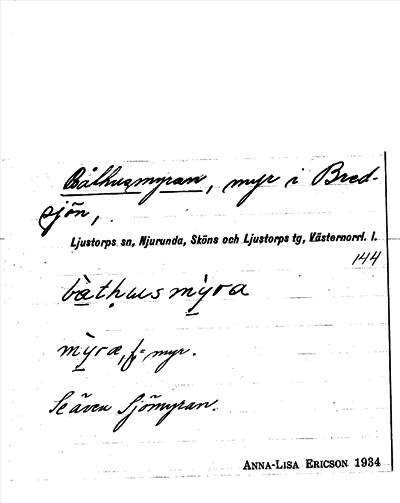 Båthusmyran, myr i Bred-
sjön,
Ljustorps sn, Njurunda, Sköns och Ljustorps tg, Västernorrl. l.
144
bàt̥husmỳra
mỳra, f = myr.
Se även Sjömyran.
ANNA-LISA ERICSON 1934